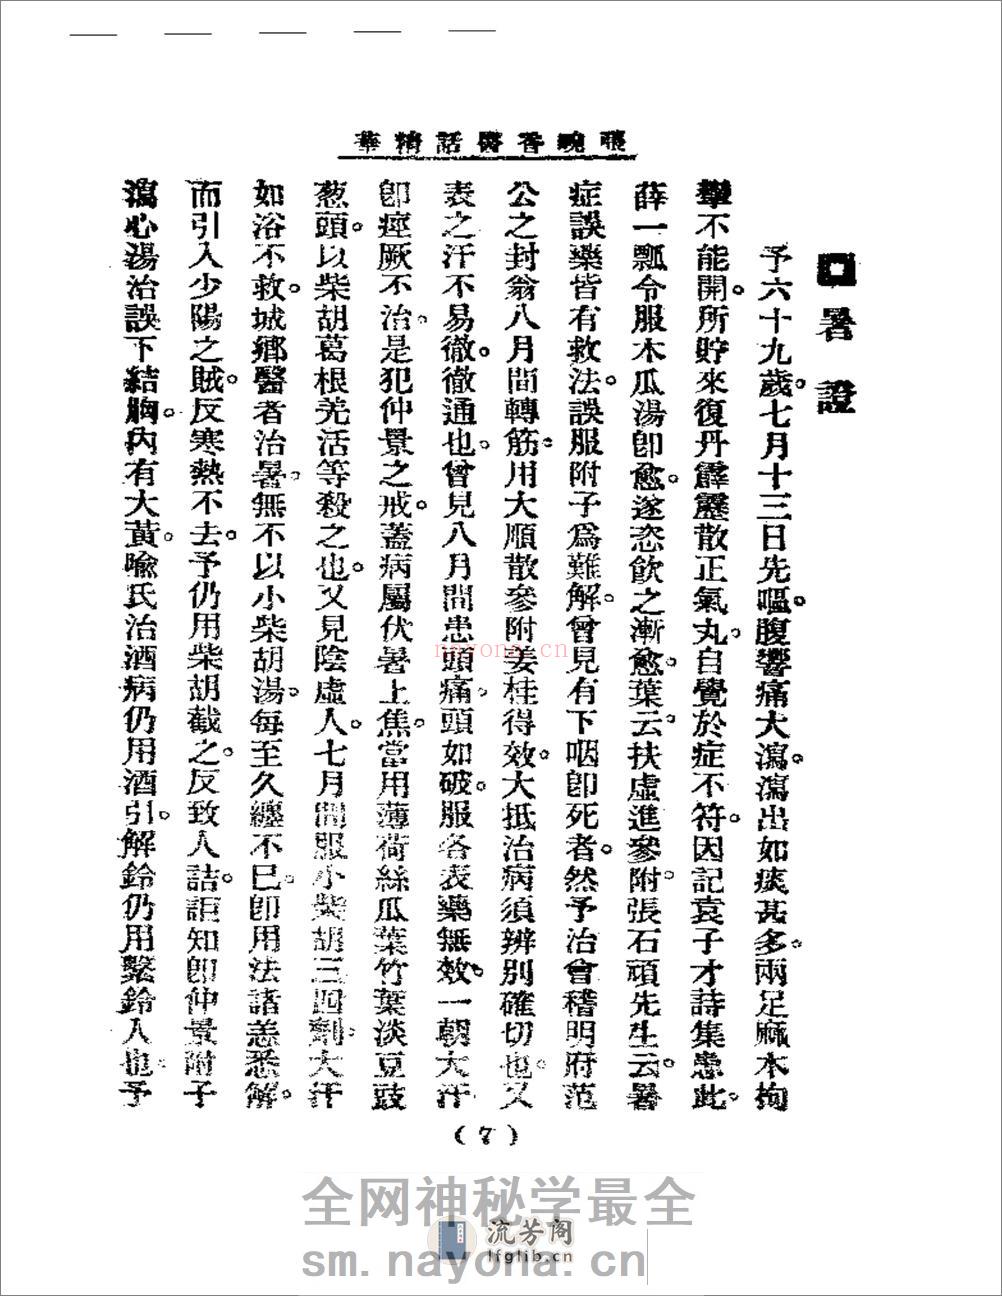 張畹香醫話精華
暑證
予六十九歲。七月十三日先嘔。腹響痛大瀉。瀉出如痰甚多。兩足麻木拘
攣不能開。所貯來復丹霹靂散正氣丸。自覺於症不符。因記袁子才詩集患此。
薛一瓢令服木瓜湯卽愈。遂恣飲之漸愈。葉云。扶虛進參附。張石頑先生云。暑
症誤藥皆有救法。誤服附子爲難解。曾見有下咽卽死者。然予治會稽明府范
公之封翁八月間轉筋。用大順散參附姜桂得效。大抵治病須辨別確切也。又
表之汗不易徹。徹通也。曾見八月間患頭痛。頭如破。服各表藥無效。一朝大汗
卽痙厥不治。是犯仲景之戒。蓋病屬伏暑上焦。當用薄荷絲瓜葉竹葉淡豆豉
葱頭。以柴胡葛根羌活等殺之也。又見陰虛人。七月間服小柴胡三四劑。大汗
如浴不救。城鄉醫者治暑。無不以小柴胡湯。每至久纏不已。卽用法諸恙悉解。
而引入少陽之賊。反寒熱不去。予仍用柴胡截之。反致人詰。詎知卽仲景附子
瀉心湯治誤下結胸。內有大黃。喩氏治酒病仍用酒引。解鈴仍用繫鈴人也。予
(7)
nayona.cn
全网神秘学最全
流芳阁
lfglib.cn
sm.nayona.cn